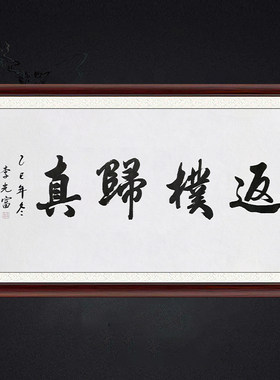 返樸歸真
乙巳年冬
李光富